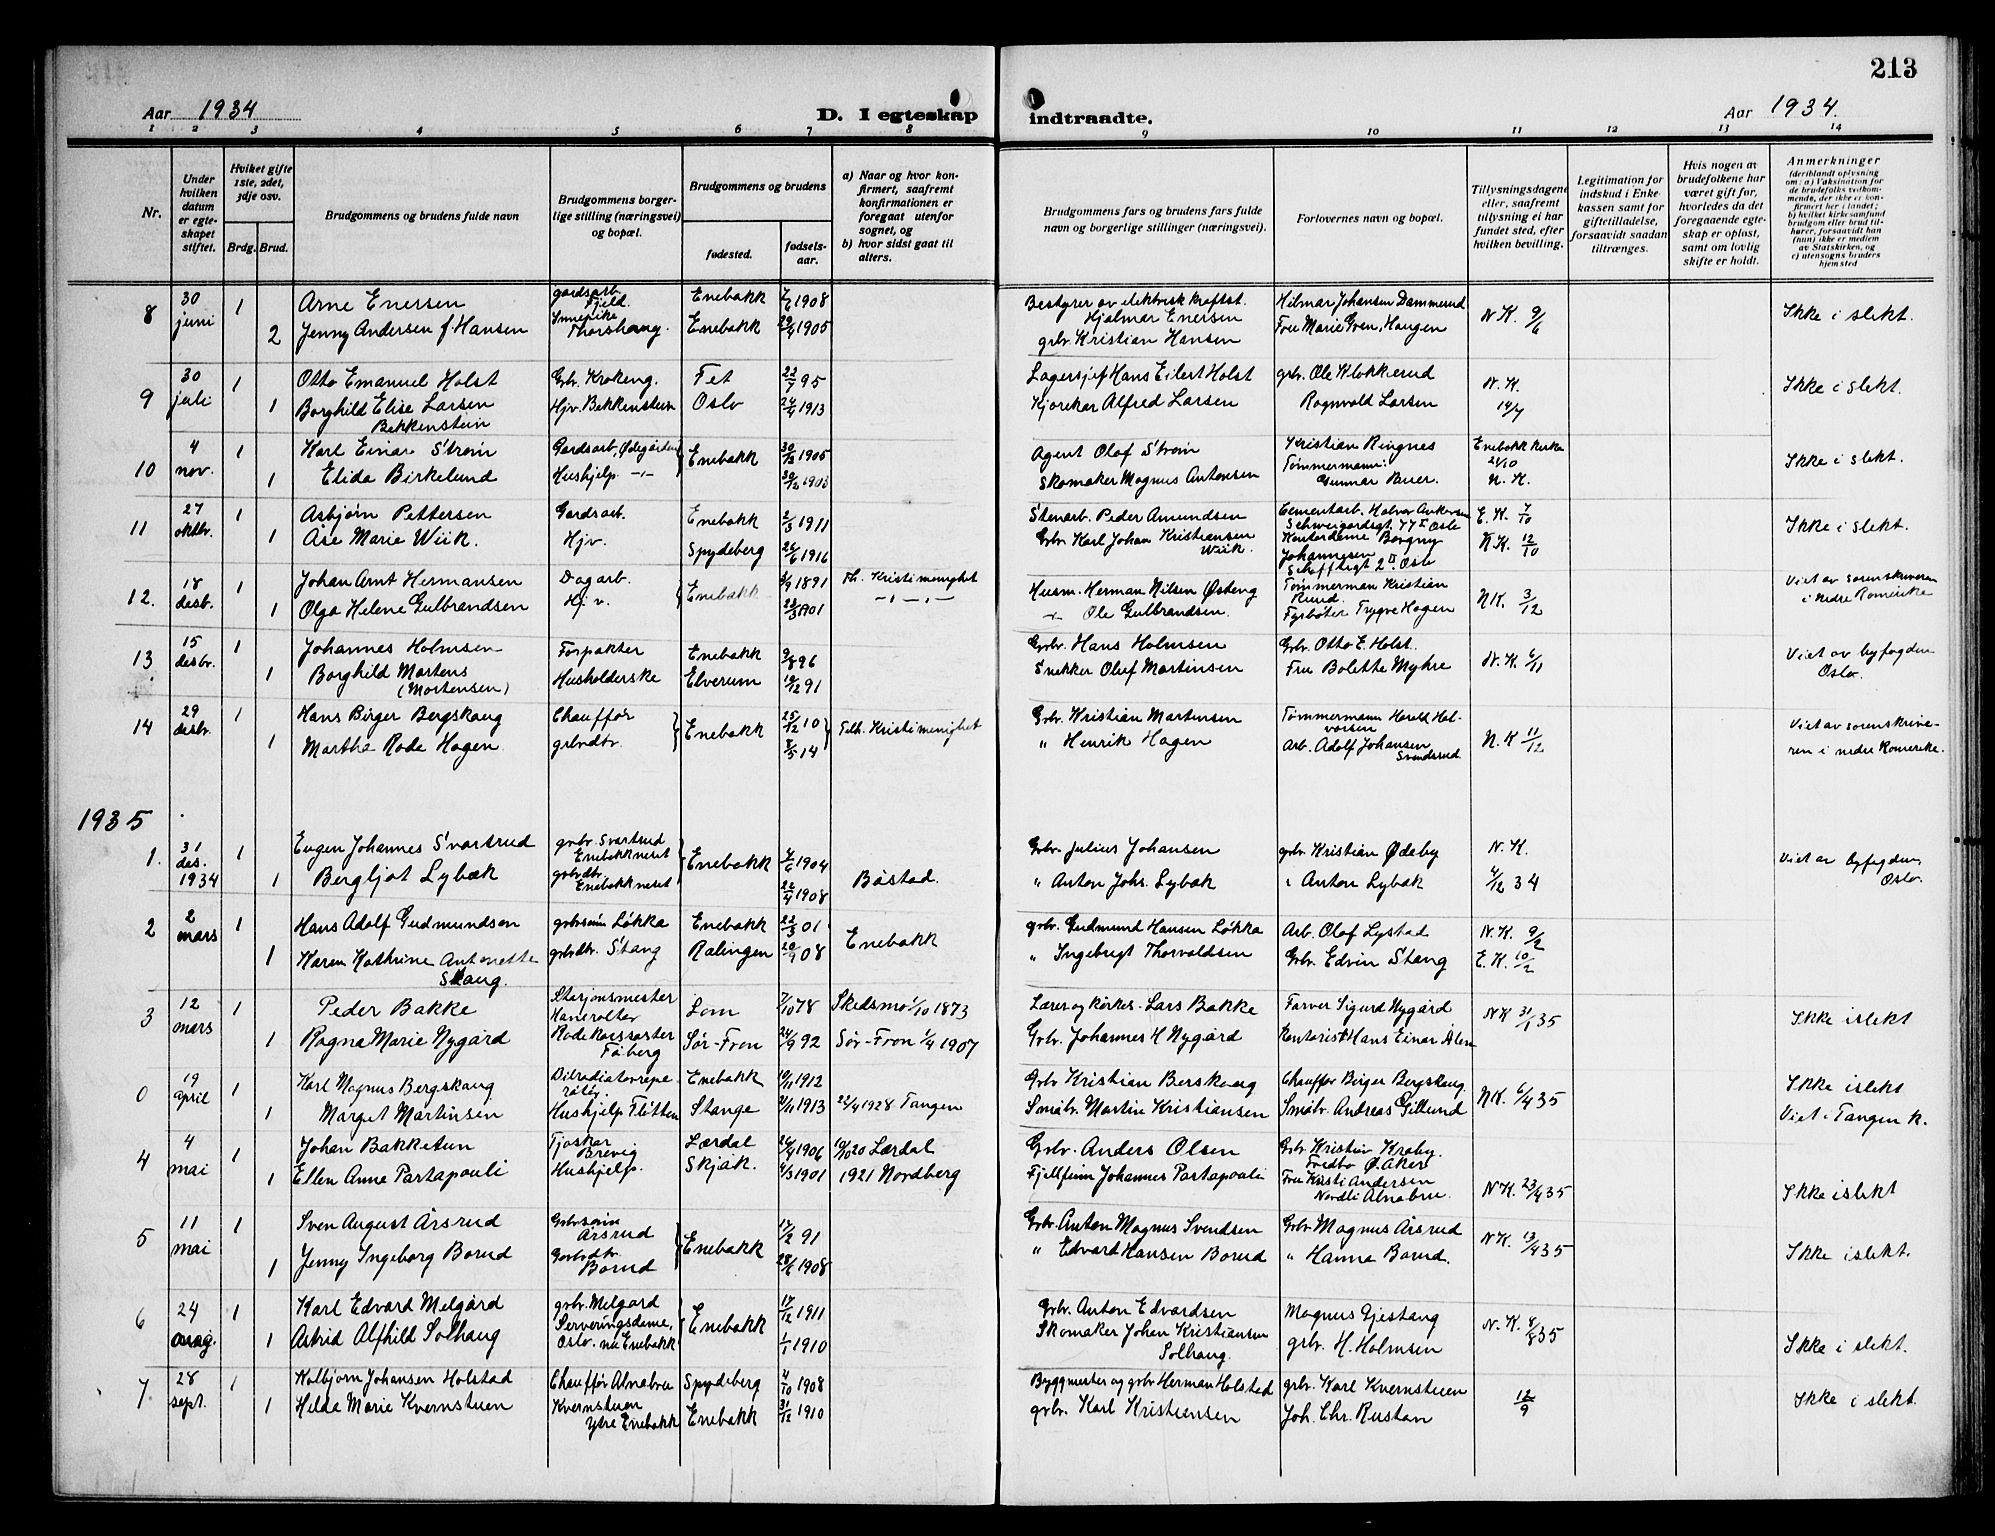 213
Aar 1934
D. I egteskap
indtraadte.
Aar 1934.
1 2 3 4 5 6 7 8 9 10 11 12 13 14
Nr.
Under hvilken datum er egteskapet stiftet.
Hviket gifte 1ste, 2det, 3dje osv.
Brdg. Brud.
Brudgommens og brudens fulde navn
Brudgommens borgerlige stilling (næringsvei) og bopæl.
Brudgommens og brudens
fødested.
fødselsaar.
a) Naar og hvor konfirmert, saafremt konfirmationen er foregaat utenfor sognet, og
b) hvor sidst gaat til alters.
Brudgommens fars og brudens fars fulde navn og borgerlige stillinger (næringsvei).
Forlovernes navn og bopæl.
Tillysningsdagene eller, saafremt tillysning ei har fundet sted, efter hvilken bevilling.
Legitimation for indskud i Enkekassen samt for giftetilladelse, forsaavidt saadan tiltrænges.
Hvis nogen av brudefolkene har været gift før, hvorledes da det foregaaende egteskap er opløst, samt om lovlig skifte er holdt.
Anmerkninger (deriblandt oplysning om: a) Vaksination for de brudefolks vedkommende, der ikke er konfirmert her i landet; b) hvilket kirkesamfund brudgom eller brud tilhører, forsaavidt han (hun) ikke er medlem av Statskirken, og c) utensogns bruders hjemsted
8 30 juni 1 Arne Enersen gardsarb. Fjeld. Enebakk 1908 Bestyrer av elektrisk kraftst. Hjalmar Enersen Hilmar Johansen Dammerud N.K. 9/6 Ikke i slekt.
2 Jenny Andersen f. Hansen Thorshaug. Enebakk 29/4 1905 grbr. Kristian Hansen Fru Marie Gren, Haugen
9 30 juli 1 Otto Emanuel Holst Grbr. Krokeng. Fet 22/7 95 Lagersjef Hans Eilert Holst grbr. Ole Klokkerud N.K. 14/7 Ikke i slekt.
1 Borghild Elise Larsen Bakkenstein Hjv. Bakkenstein Oslo 24/4 1913 Kjørekar Alfred Larsen Ragnvald Larsen
10 4 nov. 1 Karl Einar Strøm Gardsarb, Ødegården Enebakk 30/12 1905 Agent Olaf Strøm Kristian Ringnes Enebakk kirke 21/10 N.K. Ikke i slekt.
1 Elida Birkelund Hushjelp -"- 30/12 1903 Skomaker Magnus Antonsen Tømmermann: Gunnar Buer.
11 27 oktbr. 1 Asbjørn Pettersen Gardsarb. Enebakk 2/3 1911 Stenarb. Peder Amundsen Cementarb. Halvor Ankersen Schweigardsgt. 77 I Oslo E.K. 7/10 Ikke i slekt.
1 Åse Marie Wiik. Hjv. Spydeberg 26/6 1916 Grbr. Karl Johan Kristiansen Wiik. Kontordame Borgny Johannesen 2 II Oslo N.K. 12/10
12. 18 desb. 1 Johan Arnt Hermansen Dagarb. Enebakk 9/9 1891 Fh. Kristi menighet Husm. Herman Nilsen Østeng Tømmerman Kristian Rund N.K. 3/12 Viet av sorenskriveren i nedre Romerike
1 Olga Helene Gulbrandsen Hj.v. 23/3 1901 -"- Ole Gulbrandsen. Fyrbøter Trygve Hagen
13 15 desbr. 1 Johannes Holmsen Forpakter Enebakk 9/8 96 Grbr. Hans Holmsen Grbr. Otto E. Holst. N.K. 6/11 Viet av byfogden Oslo.
1 Borghild Martens (Mortensen) Husholderske Elverum 10/12 91 Snekker Oluf Martinsen Fru Bolette Myhre
14 29 desbr. 1 Hans Birger Bergskaug Chauffør Enebakk 25/12 10 Tilh. Kristi menighet Grbr. Kristian Martinsen Tømmermann Harald Halvorsen N.K 11/12 Viet av sorenskriveren i nedre Romerike.
1 Martha Rode Hagen grbrdtr. 8/5 14 " Henrik Hagen Arb. Adolf Johansen Svendsrud.
1935
1. 31 des. 1934 1 Eugen Johannes Svartrud grbr. Svartrud Enebakkneset Enebakk 4/6 1904 Grbr. Julius Johansen grbr. Kristian Ødeby N.K. 4/12 34 Viet av byfogden Oslo.
1 Bergljot Lybæk grbrdtr. Enebakkneset 22/4 1908 Båstad. " Anton Johs. Lybæk " Anton Lybæk
2 2 mars 1 Hans Adolf Gudmundsen grbrsønn Løkka Enebakk 22/3 01 Enebakk grbr. Gudmund Hansen Løkka Arb. Olaf Lystad N.K. 9/2
1 Karen Kathrine Antonette Skaug. grbrdtr. Stang Rælingen 20/9 08 " Ingebregt Thorvaldsen Grbr. Edvin Stang E.K. 10/2
3 12 mars 1 Peder Bakke Stasjonsmester Lom 7/10 78 Skedsmo 1/10 1873 Lærer og kirkes. Lars Bakke Farver Sigurd Nygård N K 31/1 35 Ikke i slekt
1 Ragna Marie Nygård Fåberg Sør-Fron 24/9 92 Sør-Fron 1/4 1907 Grbr. Johannes H Nygård Kontorist Hans Einar Ålen
0 19 april 1 Karl Magnus Bergskaug Bilradiatorreperatør. Enebakk 10/11 1912 Grbr Kristian Berskaug Chauffør Birger Bergskaug. N K. 6/4 35 Ikke i slekt
1 Marget Martinsen Hushjelp Fløtten Stange 2/11 1913 22/4 1928 Tangen Småbr. Martin Kristiansen Småbr. Andreas Gillund Viet i Tangen k.
4 4 mai 1 Johan Bakketun Brevig Lærdal 24/4 1906 10/10 20 Lærdal Grbr. Anders Olsen Grbr Kristian Kraby. Fredbo Ø. Aker N K. 23/4 35 Ikke i slekt
1 Ellen Anne Partapouli Hushjelp. Skjåk. 4/3 1901 1921 Nordberg Fjellfinn Johannes Partapouli Fru Kirsti Andersen Nordli Alnabru.
5 11 mai 1 Sven August Årsrud Grbrsønn Årsrud Enebakk 17/2 91 Grbr. Anton Magnus Svendsen Grbr. Magnus Årsrud N K. 13/4 35 Ikke i slekt.
1 Jenny Ingeborg Borud Grbrdtr. Borud 28/6 1908 " Edvard Hansen Borud " Hanna Borud.
6 24 aug. 1 Karl Edvard Melgård grbr. Melgård Enebakk 17/12 1911 Grbr. Anton Edvardsen Magnus Gjestang N.K. 8/8 35 Ikke i slekt.
1 Astrid Alfhild Solhaug Serveringsdame, Oslo. nu Enebakk 1/1 1910 Skomaker Johan Kristiansen Solhaug. grbr. H. Holmsen
7 28 sept. 1 Kolbjørn Johansen Holstad Chauffør Alnabru Spydeberg 4/10 1908 Byggmester og grbr Herman Holstad grbr. Karl Kvernstuen 12/9 Ikke i slekt.
1 Hilda Marie Kvernstuen Kvernstuen Ytre Enebakk Enebakk 31/12 1910 grbr. Karl Kristiansen Joh. Chr. Rustan